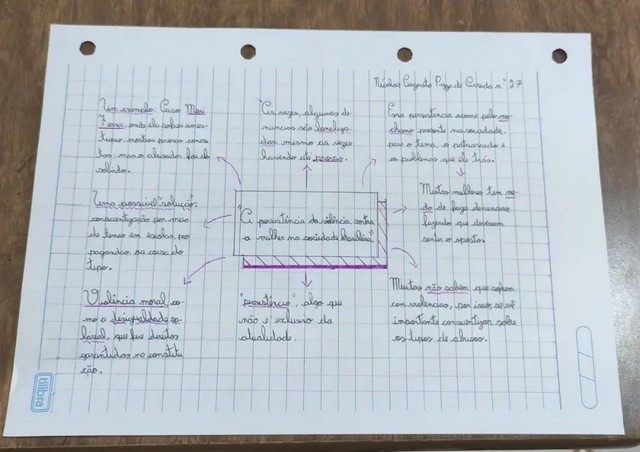 Nícolas Augusto n° 27
Um exemplo: Caso Mari
Ferrer, onde ela sofreu um es-
tupro, mostrou provas concre-
tas, mas o abusador foi ab-
solvido.
"Às vezes, algumas de-
núncias são
das mesmo as vezes
havendo
Essa persistência ocorre pelo ma-
chismo presente na sociedade,
para o tema, o patriarcado e
os problemas que ele trás.
Uma possível "solução":
conscientização por meio
de temas em escolas, pro-
pagandas, ou coisa do
tipo.
"A persistência da violência contra
a mulher na sociedade brasileira"
Muitas mulheres tem me-
do de fazer denúncias
fazendo que
o oposto.
Violência moral co-
mo a desigualdade sa-
larial, que fere direitos
garantidos na constitui-
ção.
"persistência", algo que
não é exclusivo da
atualidade.
Muitas não sabem que sofrem
com violências, por isso
importante conscientizar sobre
os tipos de abusos.
tilibra